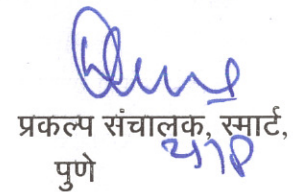 प्रकल्प संचालक, स्मार्ट,
पुणे